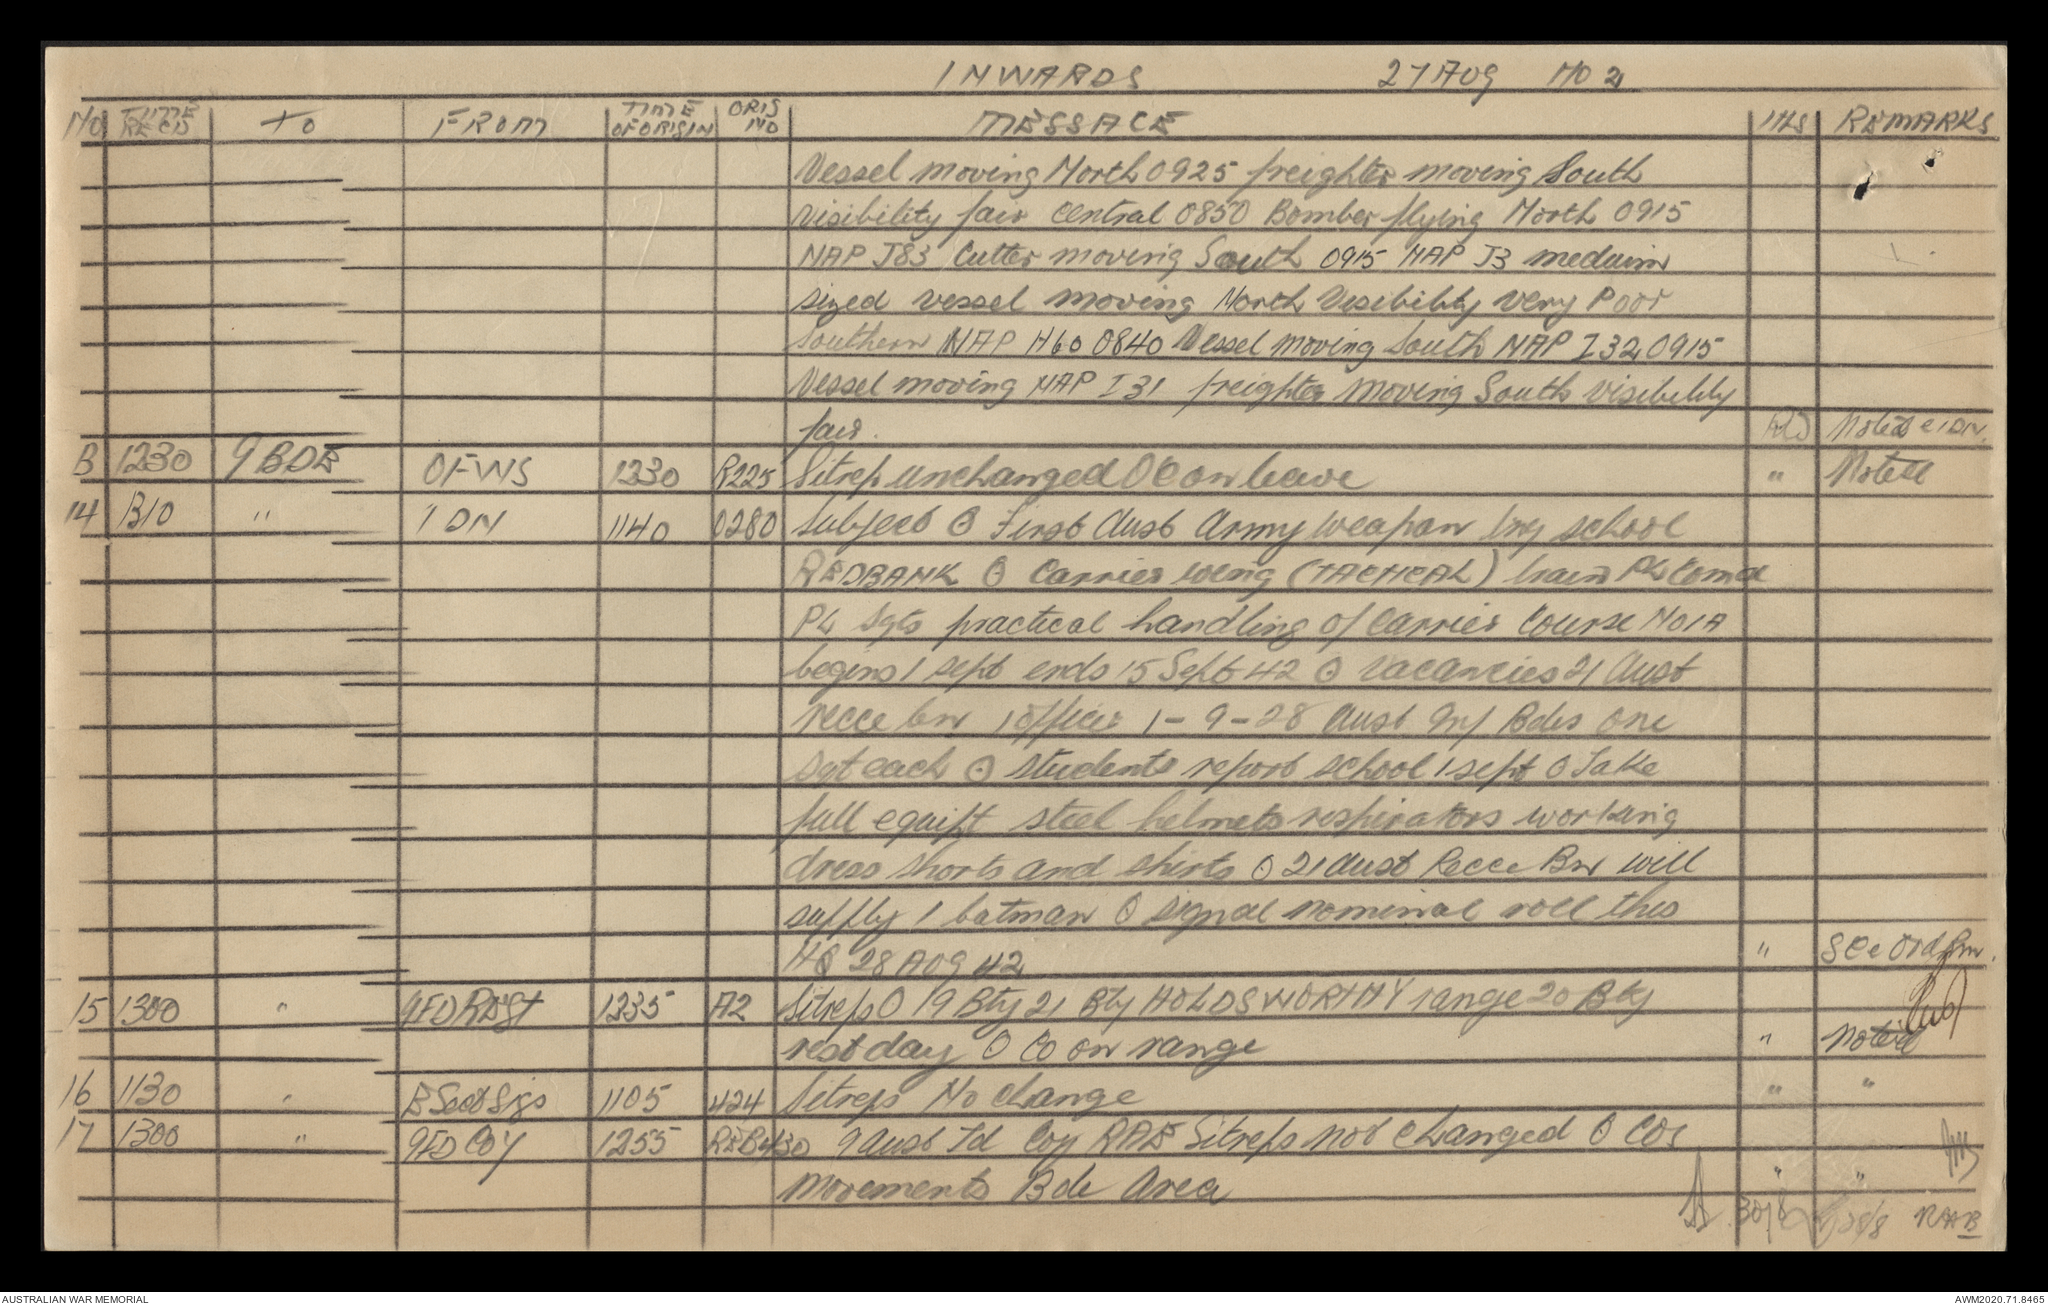 INWARDS 27 AUG NO 2
NO TIME REC'D TO FROM TIME OF ORIGIN ORIG NO MESSAGE INS REMARKS
Vessel moving North 0925 freighter moving South
visibility fair central 0850 Bomber flying North 0915
NAP J83 Cutter moving South 0915 NAP J3 meduim
sized vessel moving North Visibility very Poor
Southern NAP H60 0840 Vessel moving South NAP I32 0915
Vessel moving NAP I31 freighter moving South visibility
fair. Noted
B 1230 9 BDE OFWS 1230 R225 Sitrep unchanged OC on leave " Noted
14 B10 " 1 DN 1140 0280 Subject O First Aust Army weapon trng school
REDBANK O Carrier wing (TACTICAL) train PL Comd
PL Sgts practical handling of Carrier Course No1A
begins 1 Sept ends 15 Sept 42 O Vacancies 21 Aust
recce bn 1 officer 1-9-28 Aust Inf Bdes one
Sgt each O students report school 1 Sept O Take
full equipt steel helmets respirators working
dress shorts and shirts O 21 Aust Recce Bn will
supply 1 batman O signal nominal roll this
HQ 28 AUG 42 " See Ord Rm.
15 1300 " 9FD Regt 1235 A2 Sitreps O 19 Bty 21 Bty HOLDSWORTHY range 20 Bty
rest day O CO on range " Noted
16 1130 " B Sect Sigs 1105 424 Sitreps No change " "
17 1300 " 9FD COY 1255 REB430 9 Aust Fd Coy RAE Sitreps not changed O COs
movements Bde Area " "
30/8 28/8
AUSTRALIAN WAR MEMORIAL AWM2020.71.8465